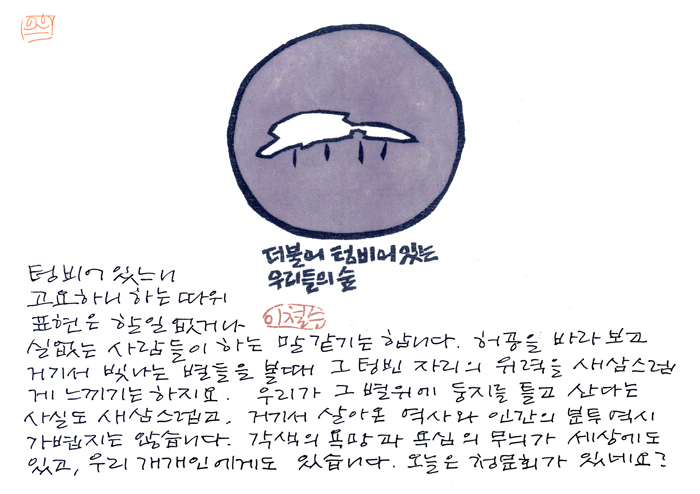 더불어 텅비어있는
우리들의 숲
이철수
텅비어 있느니
고요하니 하는 따위
표현은 할일 없거나
실없는 사람들이 하는 말 같기는 합니다. 허공을 바라보고
거기서 빛나는 별들을 볼때 그 텅빈 자리의 위력을 새삼스럽
게 느끼기는 하지요. 우리가 그 별위에 둥지를 틀고 산다는
사실도 새삼스럽고, 거기서 살아온 역사와 인간의 분투 역시
가볍지는 않습니다. 각색의 욕망과 욕심의 무늬가 세상에도
있고, 우리 개개인에게도 있습니다. 오늘은 청문회가 있네요?